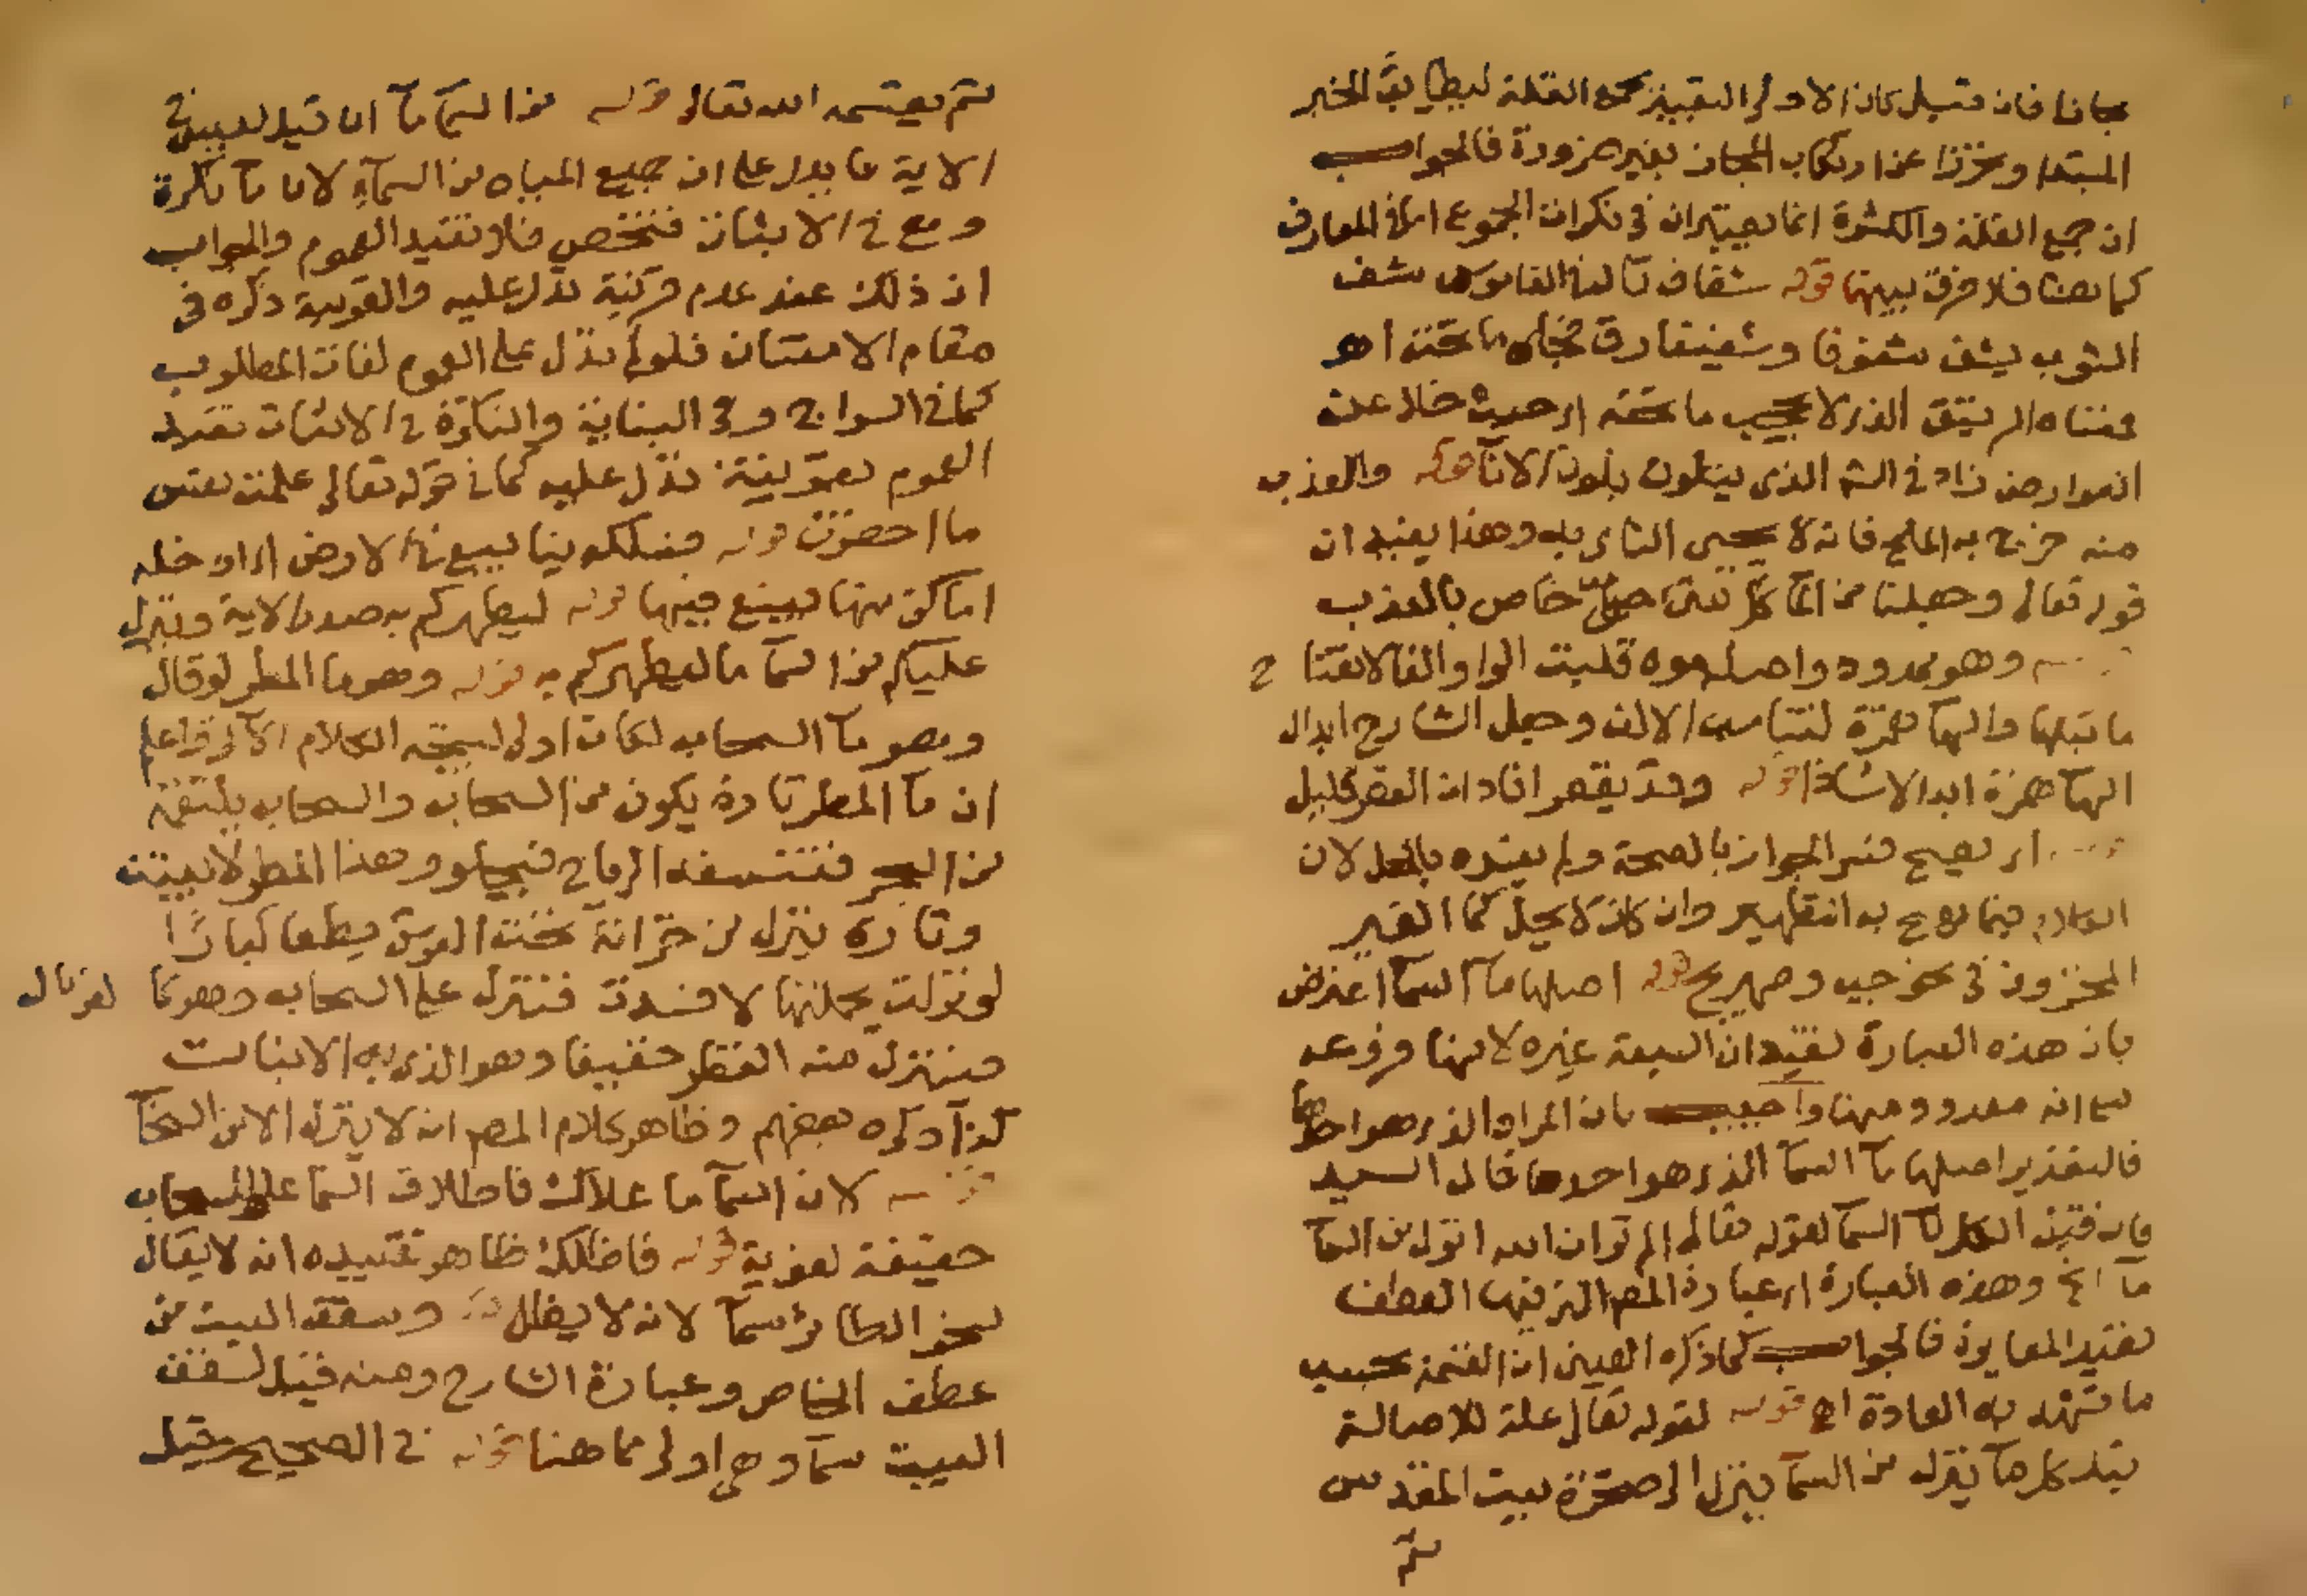 مجازا فان قيل كان الاولى التعبير بجمع القلة ليطابق الخبر
المبتدا وتحرزا عن ارتكاب المجاز بغير ضرورة فالجواب
ان جمع القلة والكثرة انما يعتبران في نكرات الجموع اما في المعارف
كما هنا فلا فرق بينهما قوله شفاف قال في القاموس شف
الثوب يشف شفوفا وشفيفا رق فحكى ما تحته اهـ
فمعناه الرقيق الذي لا يحجب ما تحته اي حيث خلا عن
العوارض زاد في الذي يتلون بلون الانا قوله والعذب
منه خرج به الملح فانه لا يحيى الشارب به وهذا يفيد ان
قوله تعالى وجعلنا من الما كل شي حي خاص بالعذب
وهو ممدود واصله موه قلبت الواو الفا لانفتاح
ما قبلها والها همزة لتناسب الالف وجعل الشارح ابدال
الها همزة ابدالا شاذا قوله وقد يقصر افاد ان القصر قليل
اي يصح فسر الجواز بالصحة ولم يفسره بالحل لان
الكلام فيما يصح به التطهير وان كان لا يحل كما الغير
المخزون في نحو جب وصهريج قوله اصلها ما السما اعترض
بان هذه العبارة تفيد ان السبعة غيره لانها فروعه
مع انه معدود منها واجيب بان المراد الذي هو احدها
فالتقدير اصلها ما السما الذي هو احدها قال السيد
فان قيل الكل ما السما لقوله تعالى الم تر ان الله انزل من السما
ما الخ وهذه العبارة اي عبارة المصـ التي فيها العطف
تفيد المغايرة فالجواب كما ذكره العيني ان القسمة بحسب
ما تشهد به العادة اهـ قوله لقوله تعالى علة للاصالة
قيل كل ما نزل من السما ينزل الى صخرة بيت المقدس
ثم
ثم يقسمه الله تعالى قوله من السما ما ان قيل ليس في
الاية ما يدل على ان جميع المياه من السماء لان ما نكرة
ومع في الاثبات فتخص فلا تفيد العموم والجواب
ان ذلك عند عدم قرينة تدل عليه والقرينة ذكره في
مقام الامتنان فلو لم تدل على العموم لفات المطلوب
كما في السراج وفي البناية والنكرة في الاثبات تفيد
العموم بقرينة تدل عليه كما في قوله تعالى علمت نفس
ما احضرت قوله فسلكه ينابيع في الارض اي ادخله
اماكن منها فينبع فيها قوله ليطهركم به صدر الاية وينزل
عليكم من السما ما ليطهركم به قوله وهو ما المطر لو قال
وهو ما السحاب لكان اولى ليتجه الكلام الاتي واعلم
ان ما المطر تارة يكون من السحاب والسحاب يلتقمه
من البحر فتنسفه الرياح فيحلو وهذا المطر لا ينبت
وتارة ينزل من خزانة تحت العرش قطعا كبارا
لو نزلت بجملتها لافسدت فتنزل على السحاب وهو كا لغربال
فينزل منه القطر خفيفا وهو الذي به الانبات
كذا ذكره بعضهم وظاهر كلام المصـ انه لا ينزل الا من السحاب
قوله لان السما ما علاك فاطلاق السما على السحاب
حقيقة لغوية قوله فاظلك ظاهر تقييده انه لا يقال
لنحو الطائر سما لانه لا يظل قوله وسقف البيت من
عطف الخاص وعبارة الشارح ومنه قيل لسقف
البيت سما وهي اولى مما هنا قوله في الصحيح وقيل